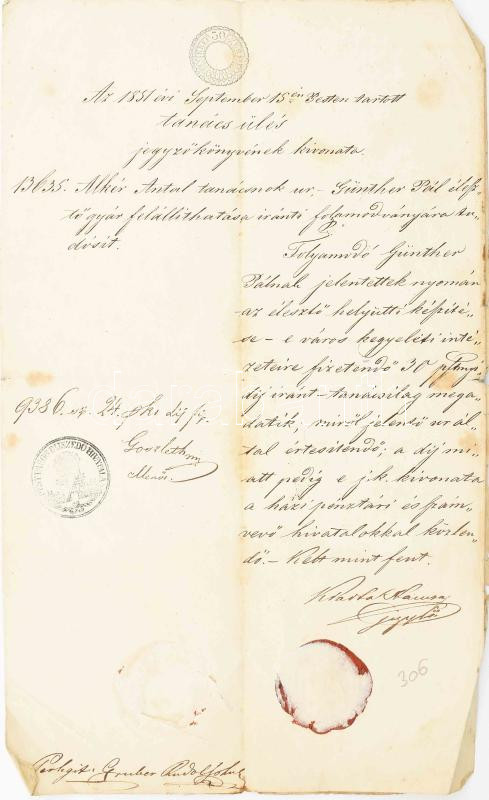 Az 1851 évi September 15én Pesten tartott
tanács ülés
jegyzökönyvének kivonata.
13635. Alkér Antal tanácsnok ur. – Günther Pál élesz„
tő gyár felállithatása iránti folyamodványára tu„
dósit.
Folyamodó Günther
Pálnak jelentettek nyomán
az élesztő helyütti készité„
se – e város kegyeleti inté„
zeteire fizetendő 30 pftnyi
dij iránt – tanácsilag mega„
datik; miről jelentő ur ál„
tal értesitendő; a dij mi„
att pedig e j.k. kivonata
a házi pénztári és szám„
vevő hivatalokkal közlen„
dő. – Kelt mint fent.
9386. sz. 24. pkr dij
306
Gruber Rudolf